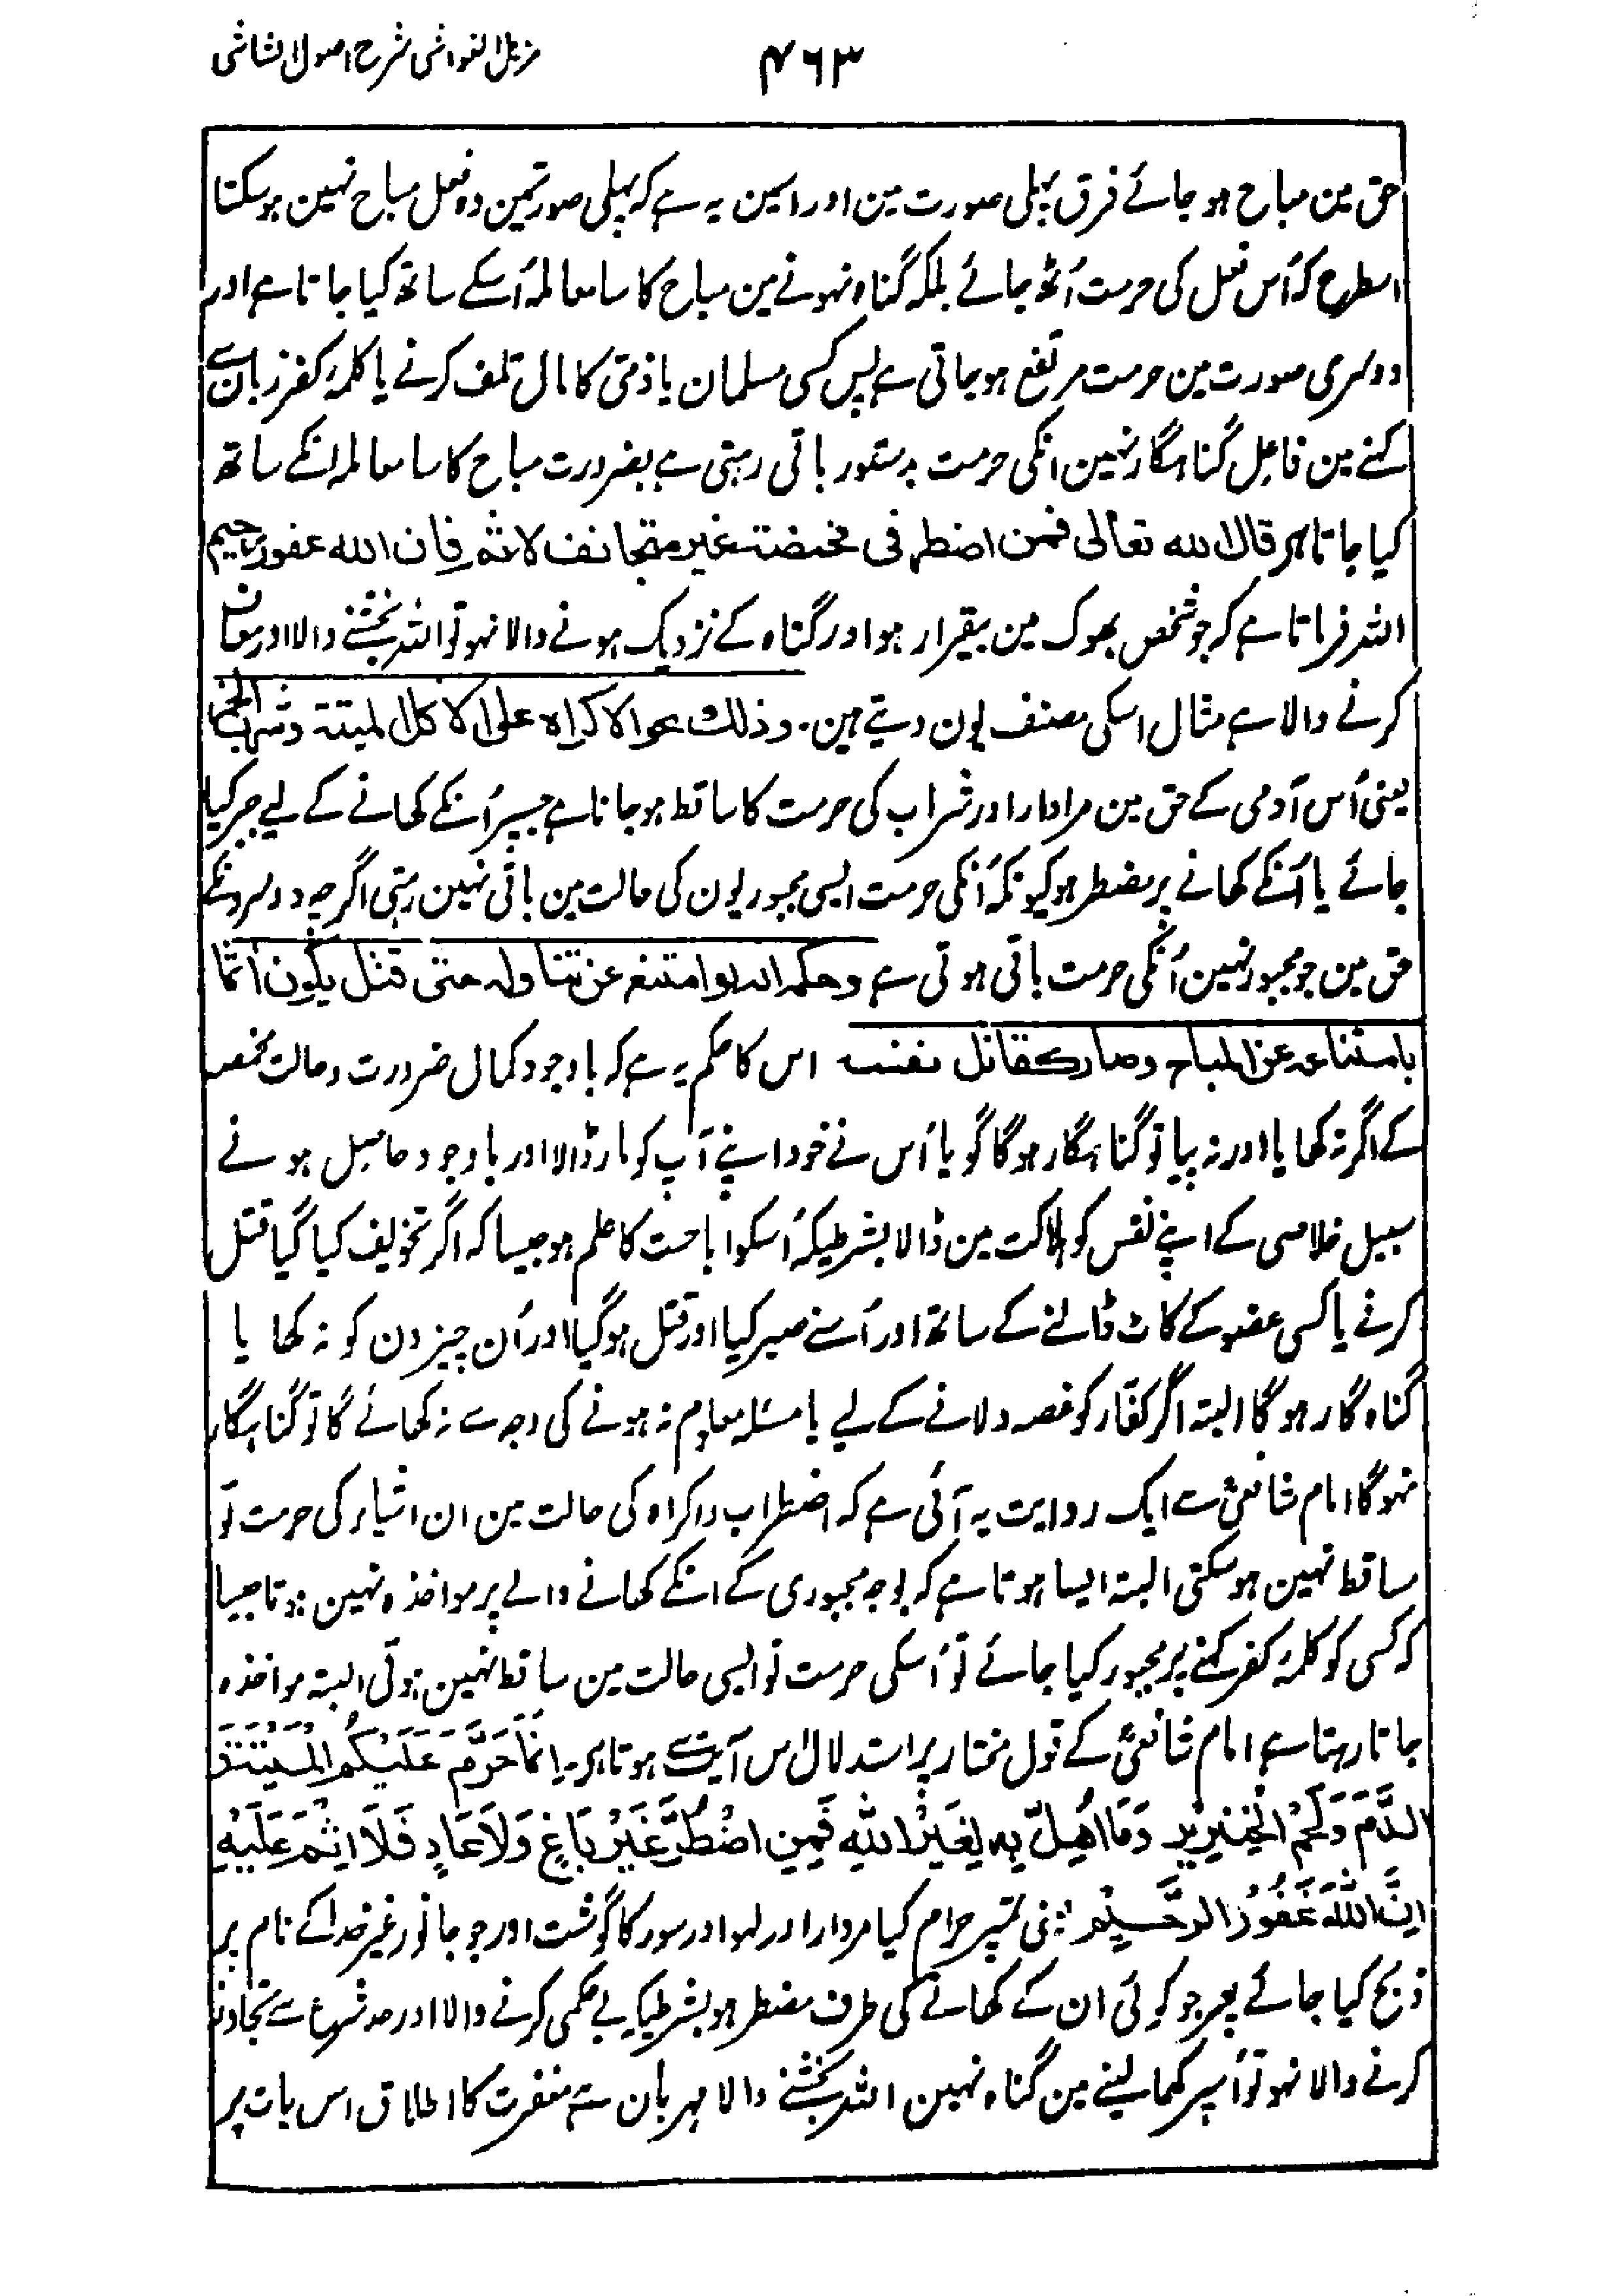 مزیل الغواشی شرح اصول الشاشی
۴۶۳
حق مین مباح ہو جائے فرق پہلی صورت مین اور اسمین یہ ہے کہ پہلی صورتمین وہ فعل مباح نہین ہو سکتا
اسطرح کہ اُس فعل کی حرمت اُٹھ جائے بلکہ گناہ نہونے مین مباح کا سا معاملہ اُسکے ساتھ کیا جاتا ہے اور
دوسری صورت مین حرمت مرتفع ہو جاتی ہے پس کسی مسلمان یا ذمّی کا مال تلف کرنے یا کلمۂ کفر زبان سے
کہنے مین فاعل گناہگار نہین انکی حرمت بدستور باقی رہتی ہے بضرورت مباح کا سا معاملہ انکے ساتھ
کیا جاتا ہر قال الله تعالی فمن اضطر فی مخمصة غیر متجانف لاثم فان الله غفور رحیم
اللہ فرماتا ہے کہ جو شخص بھوک مین بیقرار ہو اور گناہ کے نزدیک ہونے والا نہو تو اللہ بخشنے والا اور معاف
کرنے والا ہے مثال اسکی مصنف یون دیتے ہین۔ وذلك نحو الاكراه على اكل الميتة وشرب الخمر
یعنی اُس آدمی کے حق مین مردار اور شراب کی حرمت کا ساقط ہو جانا ہے جسپر اُنکے کھانے کے لیے جبر کیا
جائے یا اُنکے کھانے پر مضطر ہو کیونکہ اُنکی حرمت ایسی مجبوریون کی حالت مین باقی نہین رہتی اگرچہ دوسرونکے
حق مین جو مجبور نہین اُنکی حرمت باقی ہوتی ہے وحكمه انه لو امتنع عن تناوله حتى قتل يكون اثما
بامتناعه عن المباح وصار كقاتل نفسه اس کا حکم یہ ہے کہ باوجود کمال ضرورت و حالت مخمصہ
کے اگر نہ کھایا اور نہ پیا تو گناہگار ہوگا گویا اُس نے خود اپنے آپ کو مار ڈالا اور باوجود حاصل ہونے
سبیل خلاصی کے اپنے نفس کو ہلاکت مین ڈالا بشرطیکہ اُسکو اباحت کا علم ہو جیسا کہ اگر تخویف کیا گیا قتل
کرنے یا کسی عضو کے کاٹ ڈالنے کے ساتھ اور اُسنے صبر کیا اور قتل ہو گیا اور اُن چیزون کو نہ کھایا
گناہ گار ہوگا البتہ اگر کفّار کو غصہ دلانے کے لیے یا مسئلہ معلوم نہ ہونے کی وجہ سے نہ کھائے گا تو گناہگار
نہوگا امام شافعیؒ سے ایک روایت یہ آئی ہے کہ اضطراب و اکراہ کی حالت مین ان اشیاء کی حرمت تو
ساقط نہین ہو سکتی البتہ ایسا ہوتا ہے کہ بوجہ مجبوری کے انکے کھانے والے پر مواخذہ نہین ہوتا جیسا
کہ کسی کو کلمۂ کفر کہنے پر مجبور کیا جائے تو اُسکی حرمت تو ایسی حالت مین ساقط نہین ہوتی البتہ مواخذہ
جاتا رہتا ہے امام شافعیؒ کے قول مختار پر استدلال اس آیت سے ہوتا ہر۔ اِنَّمَا حَرَّمَ عَلَيْكُمُ الْمَيْتَةَ
الدَّمَ وَلَحْمَ الْخِنْزِيرِ وَمَا اُهِلَّ بِهِ لِغَيْرِ اللهِ فَمَنِ اضْطُرَّ غَيْرَ بَاغٍ وَلَا عَادٍ فَلَا اِثْمَ عَلَيْهِ
اِنَّ اللهَ غَفُوْرٌ الرَّحِيْمٌ یعنی تمپر حرام کیا مردار اور لہو اور سور کا گوشت اور جو جانور غیر خدا کے نام پر
ذبح کیا جائے پھر جو کوئی ان کے کھانے کی طرف مضطر ہو بشرطیکہ بے حکمی کرنے والا اور حد شرع سے تجاوز
کرنے والا نہو تو اُسپر کھا لینے مین گناہ نہین اللہ بخشنے والا مہربان ہے مغفرت کا اطلاق اس بات پر